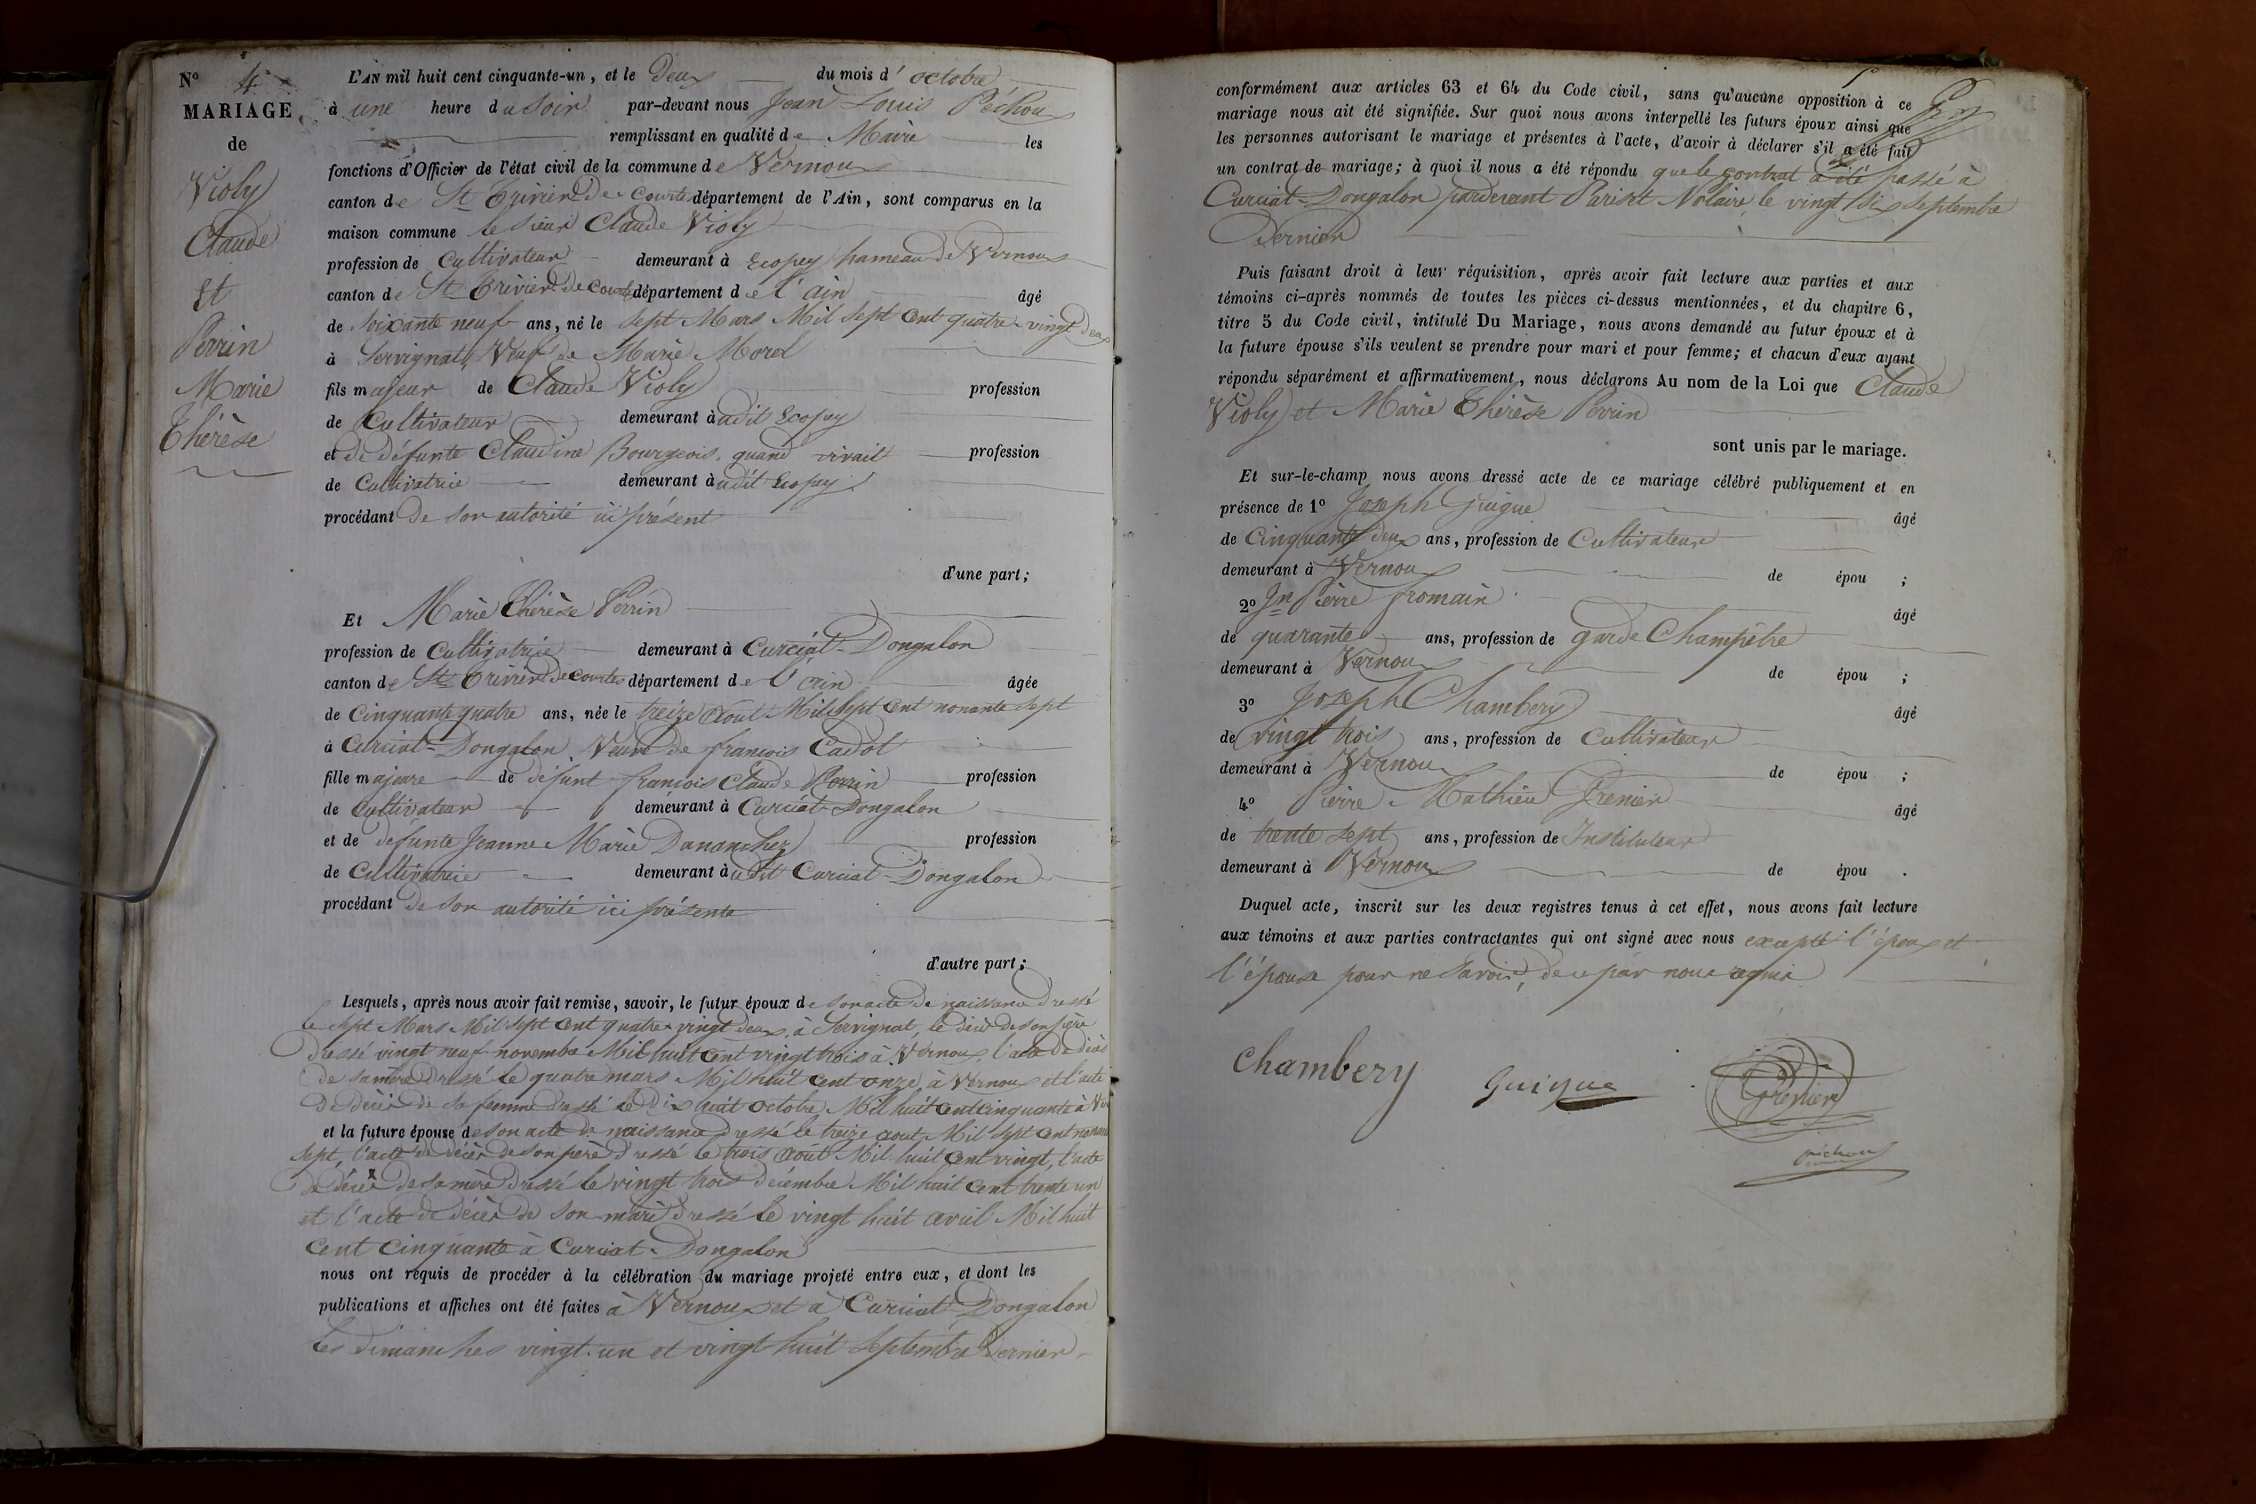 N° 4
MARIAGE
de
Violy
Claude
et
Perrin
Marie
Thérèse
L'AN mil huit cent cinquante-un, et le Deux du mois d' octobre
à une heure du Soir par-devant nous Jean Louis Péchoux
remplissant en qualité de Maire les
fonctions d'Officier de l'état civil de la commune de Vernoux
canton de St Trivier De Courtes département de l'Ain, sont comparus en la
maison commune le sieur Claude Violy
profession de Cultivateur demeurant à Ecopey hameau de Vernoux
canton de St Trivier De Courtes département de l'ain âgé
de soixante neuf ans, né le sept Mars Mil sept Cent quatre-vingt Deux
à Servignat, Veuf de Marie Morel
fils majeur de Claude Violy profession
de Cultivateur demeurant à udit Ecopey
et de défunte Claudine Bourgeois quand vivait profession
de Cultivatrice demeurant à udit Ecopey
procédant De son autorité ici présent
d'une part;
Et Marie Thérèse Perrin
profession de Cultivatrice demeurant à Curciat-Dongalon
canton de St Trivier De Courtes département de l'ain âgée
de Cinquante quatre ans, née le treize aout Mil sept Cent nonante sept
à Curciat-Dongalon Veuve de françois Cadot
fille majeure de défunt françois Claude Perrin profession
de Cultivateur demeurant à Curciat-Dongalon
et de défunte Jeanne Marie Dananchez profession
de Cultivatrice demeurant à udit Curciat-Dongalon
procédant de son autorité ici présente
d'autre part;
Lesquels, après nous avoir fait remise, savoir, le futur époux de son acte de naissance dressé
le sept Mars Mil sept Cent quatre-vingt deux, à Servignat, le décès de son père
dressé vingt neuf novembre Mil huit Cent vingt trois à Vernoux l'acte de décès
de sa mère dressé le quatre mars Mil huit Cent onze à Vernoux et l'acte
de décès de sa femme dressé le dix huit octobre Mil huit Cent cinquante à
et la future épouse de son acte de naissance dressé le treize aout Mil sept Cent
sept, l'acte de décès de son père dressé le trois Août Mil huit Cent vingt, l'acte
de décès de sa mère dressé le vingt trois décembre Mil huit Cent trente un
et l'acte de décès de son mari dressé le vingt huit avril Mil huit
Cent Cinquante à Curciat-Dongalon
nous ont requis de procéder à la célébration du mariage projeté entre eux, et dont les
publications et affiches ont été faites à Vernoux et à Curciat Dongalon
les dimanches vingt-un et vingt huit septembre dernier
conformément aux articles 63 et 64 du Code civil, sans qu'aucune opposition à ce
mariage nous ait été signifiée. Sur quoi nous avons interpellé les futurs époux ainsi que
les personnes autorisant le mariage et présentes à l'acte, d'avoir à déclarer s'il a été fait
un contrat de mariage; à quoi il nous a été répondu que le contrat a été passé à
Curciat-Dongalon pardevant Parisit Notaire le vingt six septembre
Dernier
Puis faisant droit à leur réquisition, après avoir fait lecture aux parties et aux
témoins ci-après nommés de toutes les pièces ci-dessus mentionnées, et du chapitre 6,
titre 5 du Code civil, intitulé Du Mariage, nous avons demandé au futur époux et à
la future épouse s'ils veulent se prendre pour mari et pour femme; et chacun d'eux ayant
répondu séparément et affirmativement, nous déclarons Au nom de la Loi que Claude
Violy et Marie Thérèse Perrin
sont unis par le mariage.
Et sur-le-champ nous avons dressé acte de ce mariage célébré publiquement et en
présence de 1° Joseph Guigue âgé
de Cinquante deux ans, profession de Cultivateur
demeurant à Vernoux de épou ;
2° Jn Pierre fromain âgé
de quarante ans, profession de garde Champêtre
demeurant à Vernoux de épou ;
3° Joseph Chambery âgé
de vingt trois ans, profession de Cultivateur
demeurant à Vernoux de épou ;
4° Pierre Mathieu Grenier âgé
de trente sept ans, profession de Instituteur
demeurant à Vernoux de épou .
Duquel acte, inscrit sur les deux registres tenus à cet effet, nous avons fait lecture
aux témoins et aux parties contractantes qui ont signé avec nous excepté l'époux et
l'épouse pour ne savoir, de ce par nous requis
Chambery Guigue Grenier
Péchoux